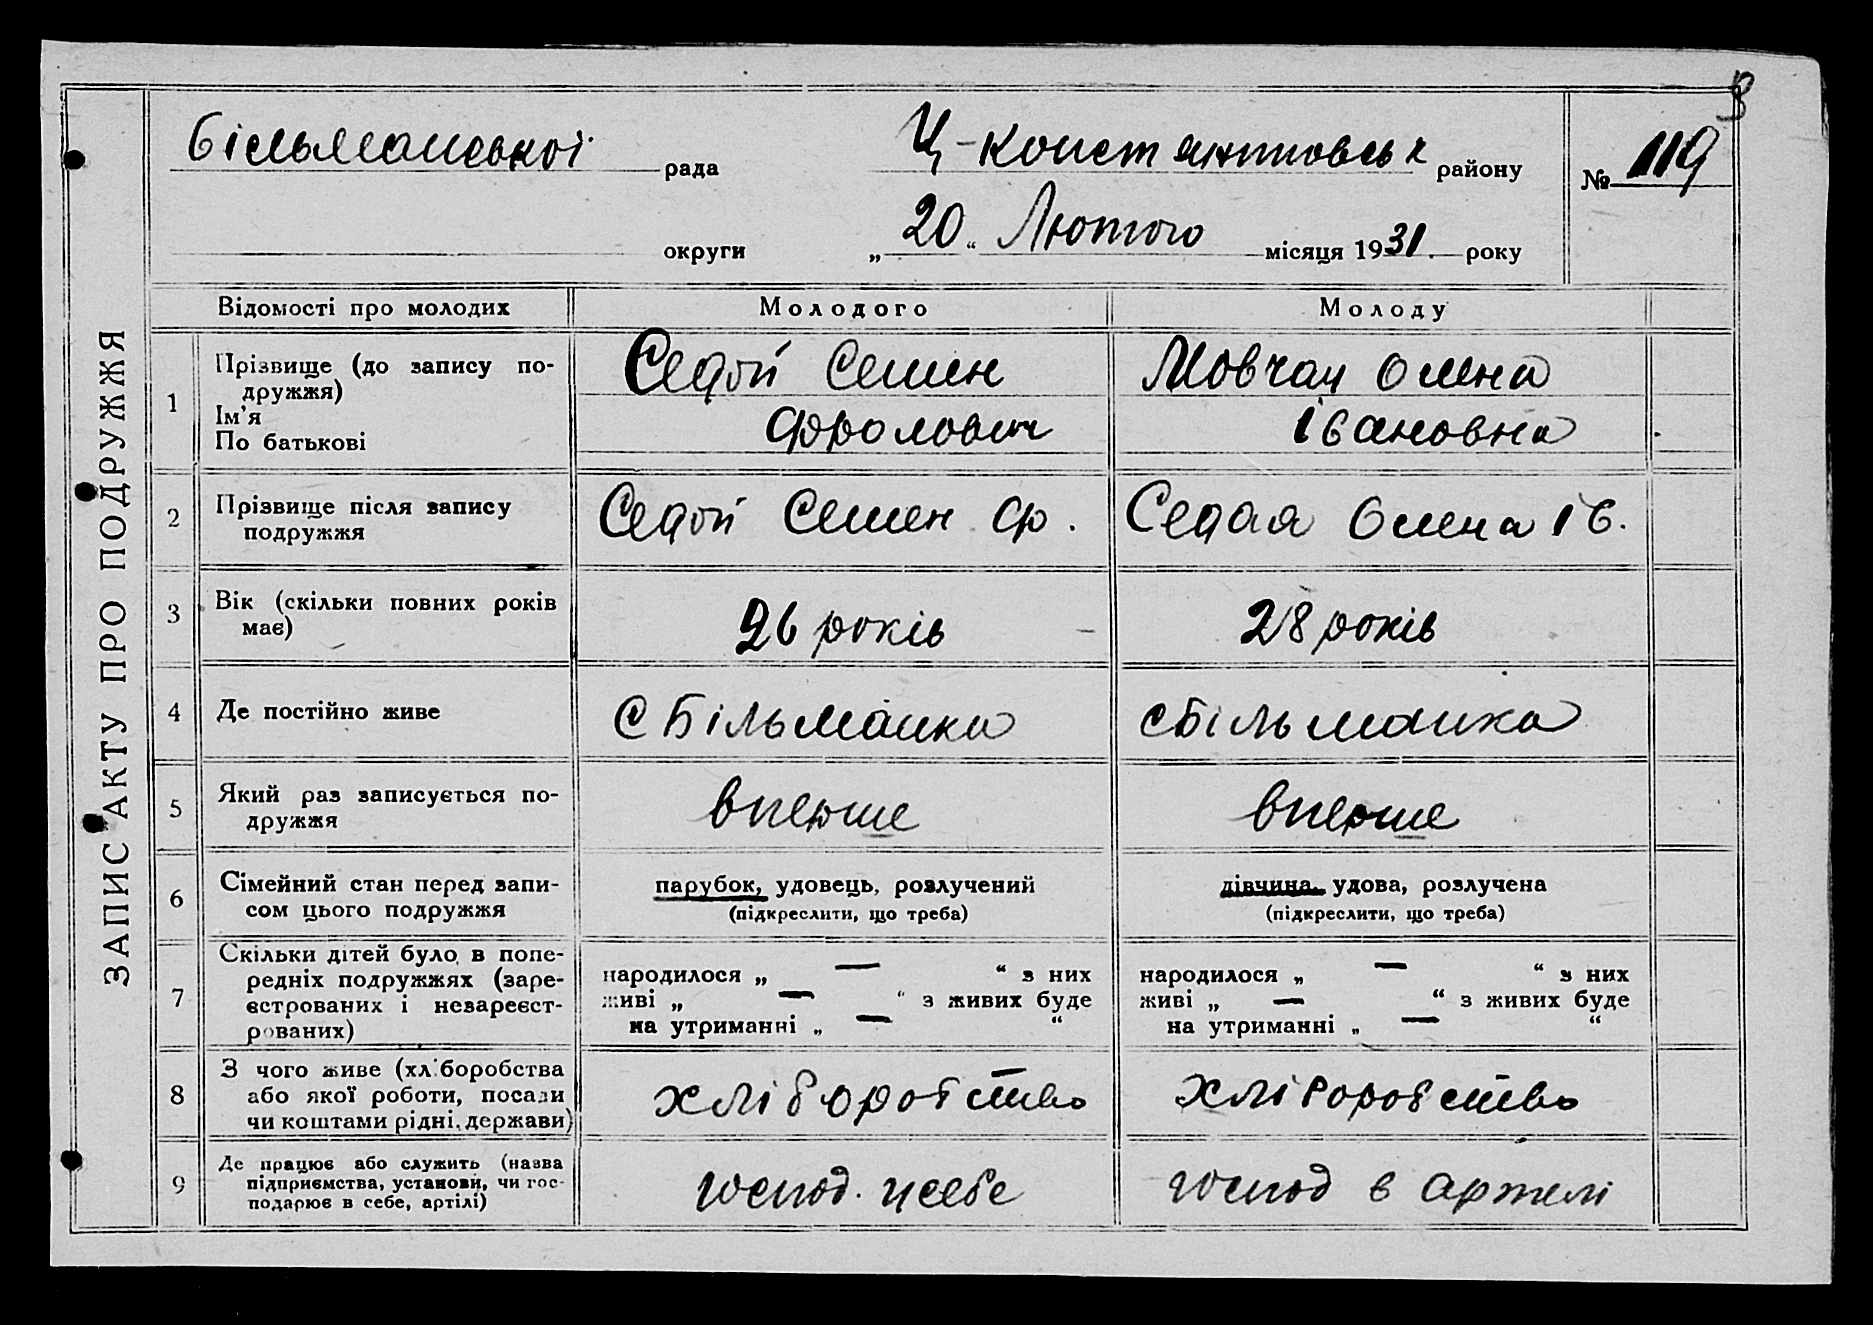 ЗАПИС АКТУ ПРО ПОДРУЖЖЯ
більманської рада
Ц-Константиновськ району
№ 119
округи
„20“ Лютого місяця 1931. року
Відомості про молодих
Молодого
Молоду
1
Прізвище (до запису по-
дружжя)
Ім'я
По батькові
Седой Семен
Фролович
Мовчан Олена
Івановна
2
Прізвище після запису
подружжя
Седой Семен Ф.
Седая Олена Ів.
3
Вік (скільки повних років
має)
26 років
28 років
4
Де постійно живе
с Більманка
с Більманка
5
Який раз записується по-
дружжя
вперше
вперше
6
Сімейний стан перед запи-
сом цього подружжя
парубок, удовець, розлучений
(підкреслити, що треба)
дівчина, удова, розлучена
(підкреслити, що треба)
7
Скільки дітей було в попе-
редніх подружжях (заре-
єстрованих і незареєст-
рованих)
народилося „ — “ з них
живі „ — “ з живих буде
на утриманні „ — “
народилося „ — “ з них
живі „ — “ з живих буде
на утриманні „ — “
8
З чого живе (хліборобства
або якої роботи, посади
чи коштами рідні, держави)
хліборобство
хліборобство
9
Де працює або служить (назва
підприємства, установи, чи гос-
подарює в себе, артілі)
господ. у себе
господ в артелі